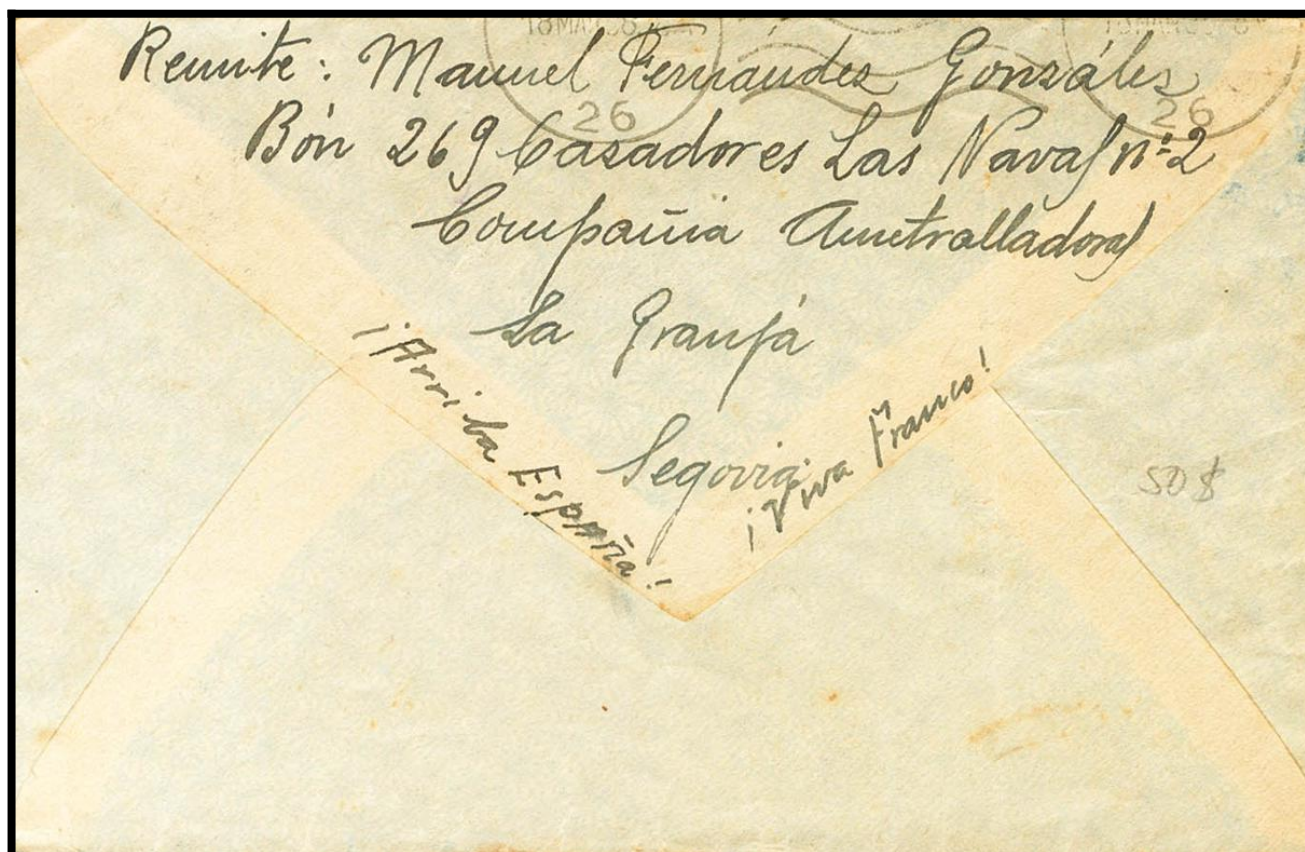 26 26
Remite: Manuel Fernández Gonzáles
Bón 269 Cazadores Las Navas nº 2
Compañia Ametralladoras
La Granja
Segovia
¡Arriba España!
¡Viva Franco!
50 $